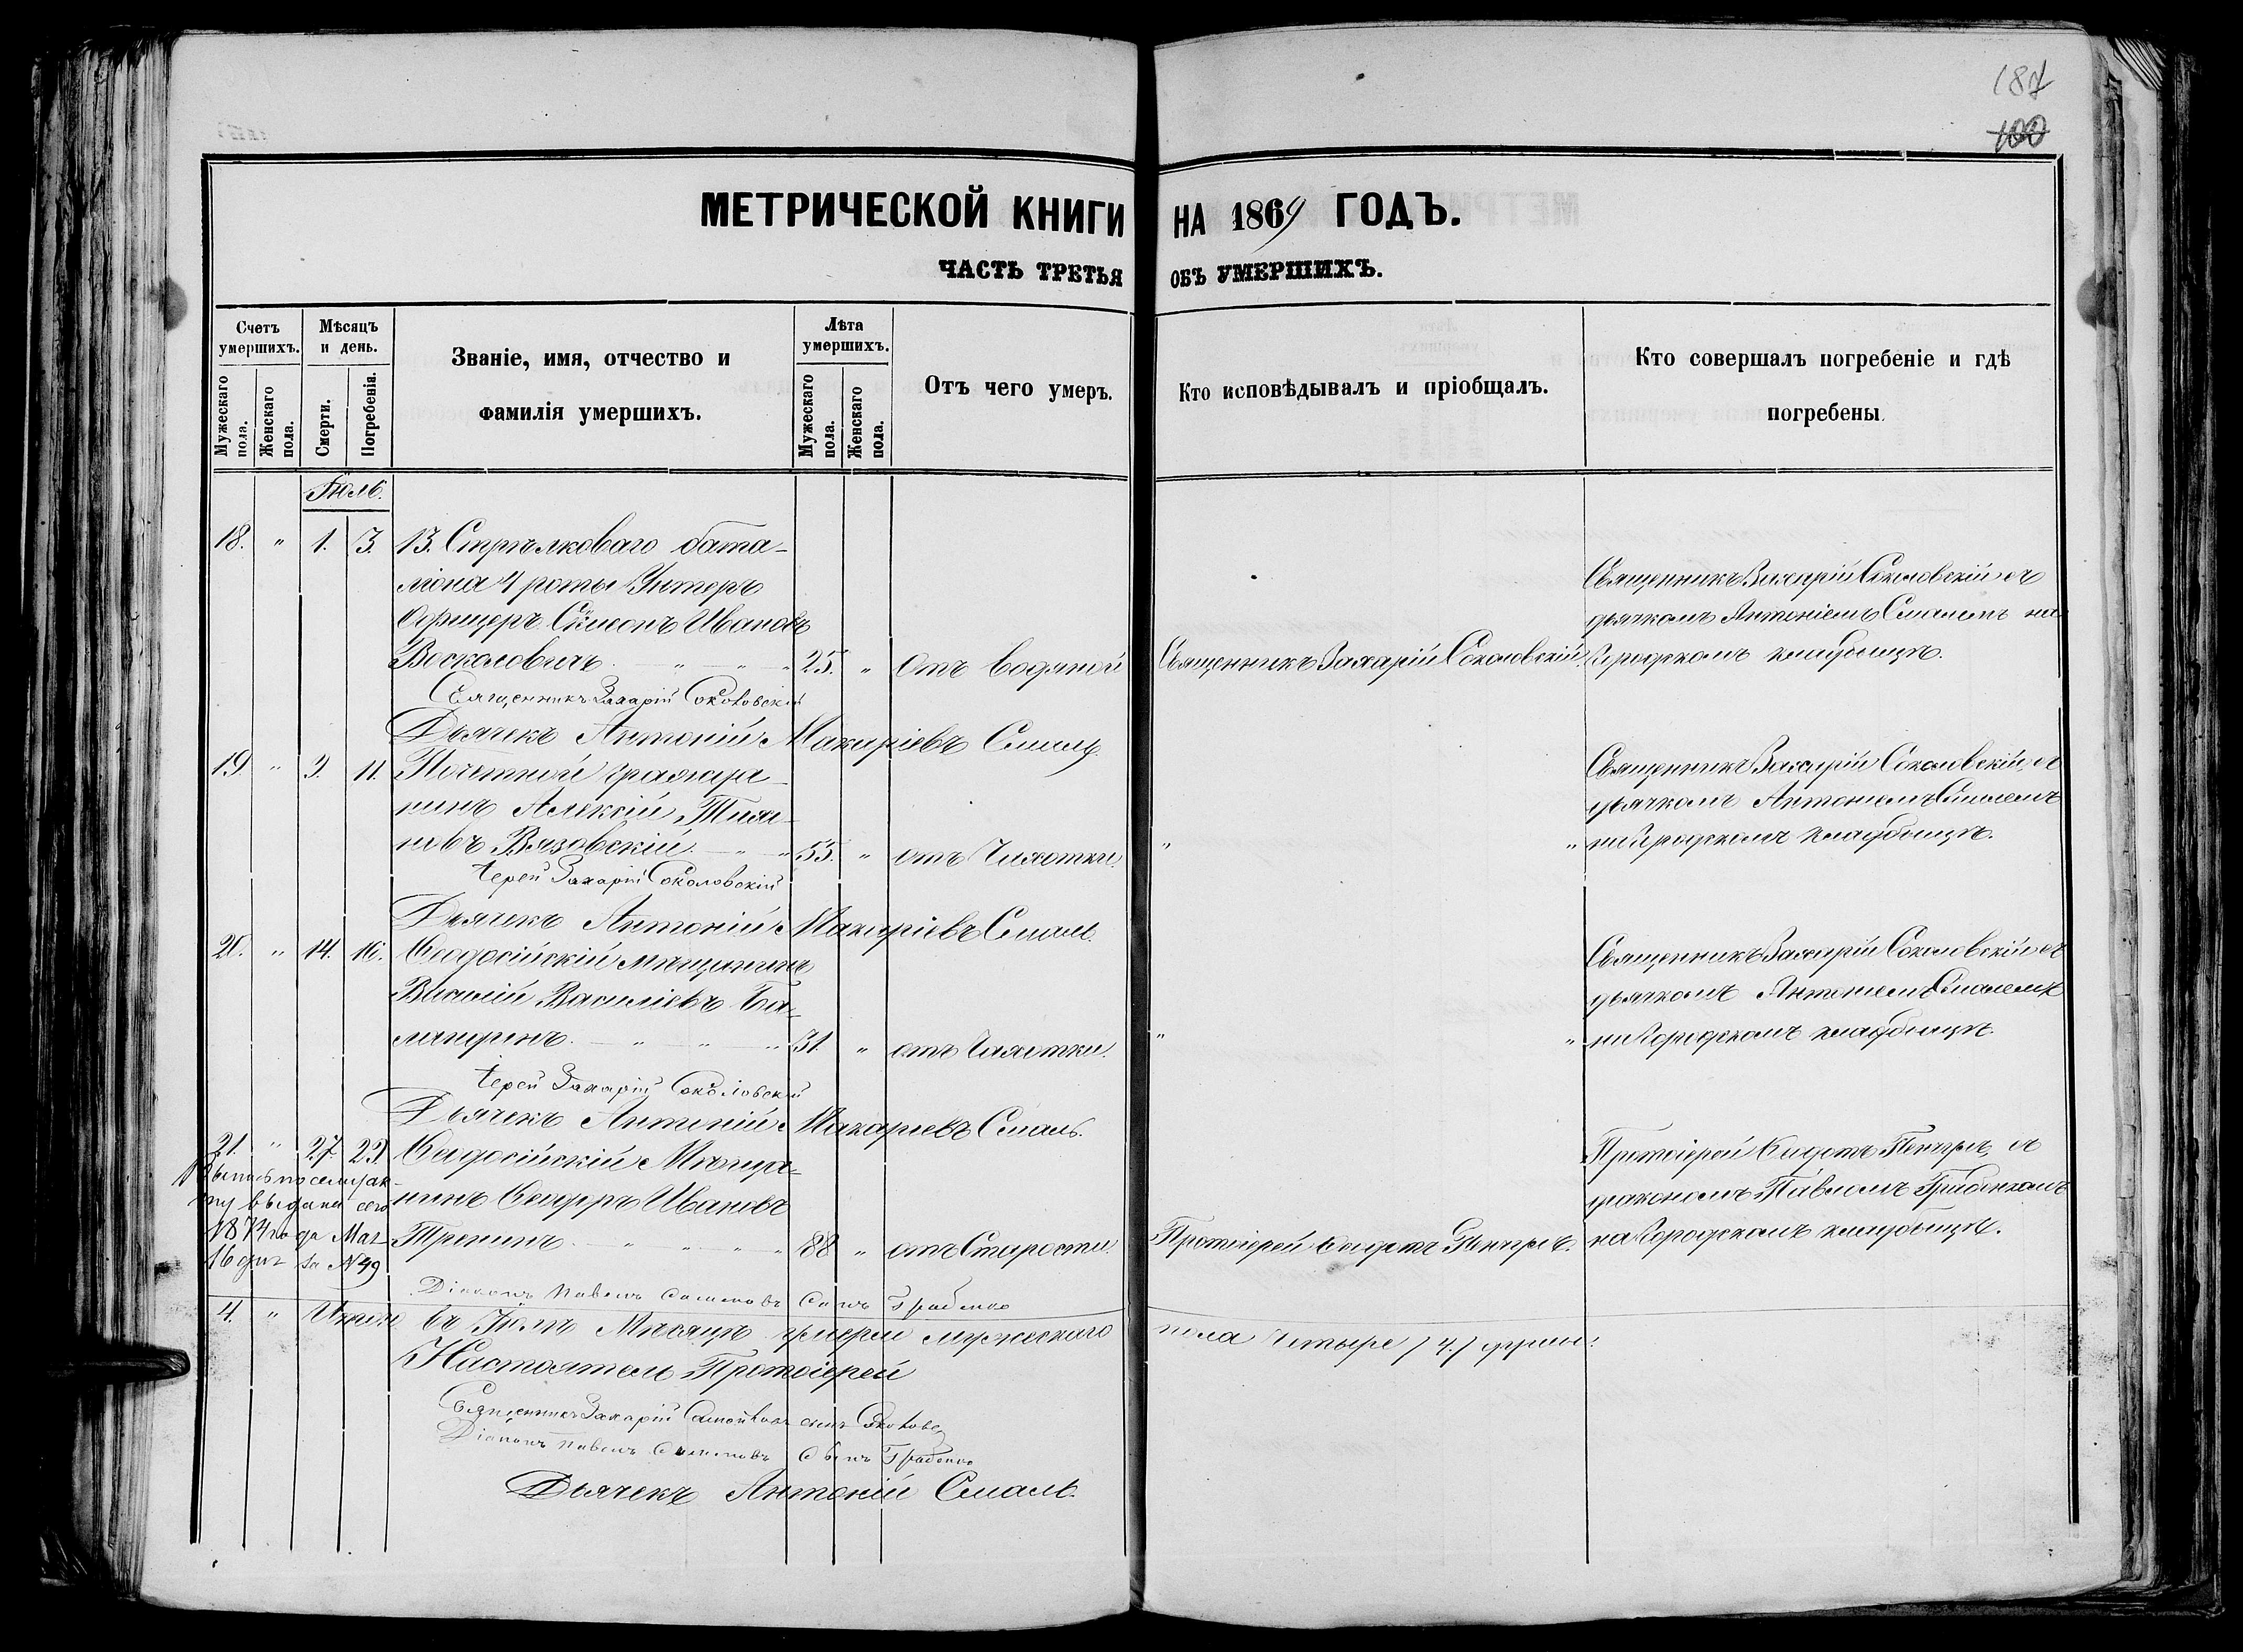 187
100
МЕТРИЧЕСКОЙ КНИГИ НА 1869 ГОДЪ.
ЧАСТЬ ТРЕТЬЯ ОБЪ УМЕРШИХЪ.
Счетъ умершихъ.
Мужескаго пола.
Женскаго пола.
Мѣсяцъ и день.
Смерти.
Погребенія.
Званіе, имя, отчество и
фамилія умершихъ.
Лѣта умершихъ.
Мужескаго пола.
Женскаго пола.
Отъ чего умеръ.
Кто исповѣдывалъ и пріобщалъ.
Кто совершалъ погребеніе и гдѣ
погребены.
Іюль.
18. " 1. 3. 13. Стрѣлковаго бата-
ліона 4 роты Унтеръ Священникъ Захарій Соколовскій съ
Офицеръ Сѵмеонъ Ивановъ дьячкомъ Антоніемъ Смалемъ на
Восколовичъ " " " 25. " Отъ водяной Священникъ Захарій Соколовскій. Городскомъ кладбищѣ.
Священникъ Захарій Соколовскій
Дьячекъ Антоній Макаріевъ Смаль.
19. " 9. 11. Почетной гражда- Священникъ Захарій Соколовскій съ
нинъ Алексій дьячкомъ Антоніемъ Смалемъ
новъ Вязовскій " " 55. " отъ Чахотки. " " на Городскомъ кладбищѣ.
Іерей Захарій Соколовскій
Дьячекъ Антоній Макаріевъ Смаль.
20. " 14. 16. Ѳеодосійскій мѣщанинъ Священникъ Захарій Соколовскій съ
Василій Василіевъ Ба- дьячкомъ Антоніемъ Смалемъ
ландинъ. " " " 31. " отъ Чахотки. " " на Городскомъ кладбищѣ.
Іерей Захарій Соколовскій
Дьячекъ Антоній Макаріевъ Смаль.
21. " 27. 29. Ѳеодосійскій Мѣща- Протоіерей съ
Выпись по сему ак-
ту выдана сего нинъ Ѳеодоръ Ивановъ діакономъ Павломъ Грабенкомъ
1874 года Мая Тренинъ " " " " 88 " отъ Старости. Протоіерей на Городскомъ кладбищѣ.
16 дня за N 49
Діаконъ Павелъ сынъ Грабенко
4. " Итого въ Іюлѣ Мѣсяцѣ умерли мужескаго пола четыре /4/ души.
Настоятель Протоіерей
Священникъ Захарій сынъ
Діаконъ Павелъ сынъ Грабенко
Дьячекъ Антоній Смаль.